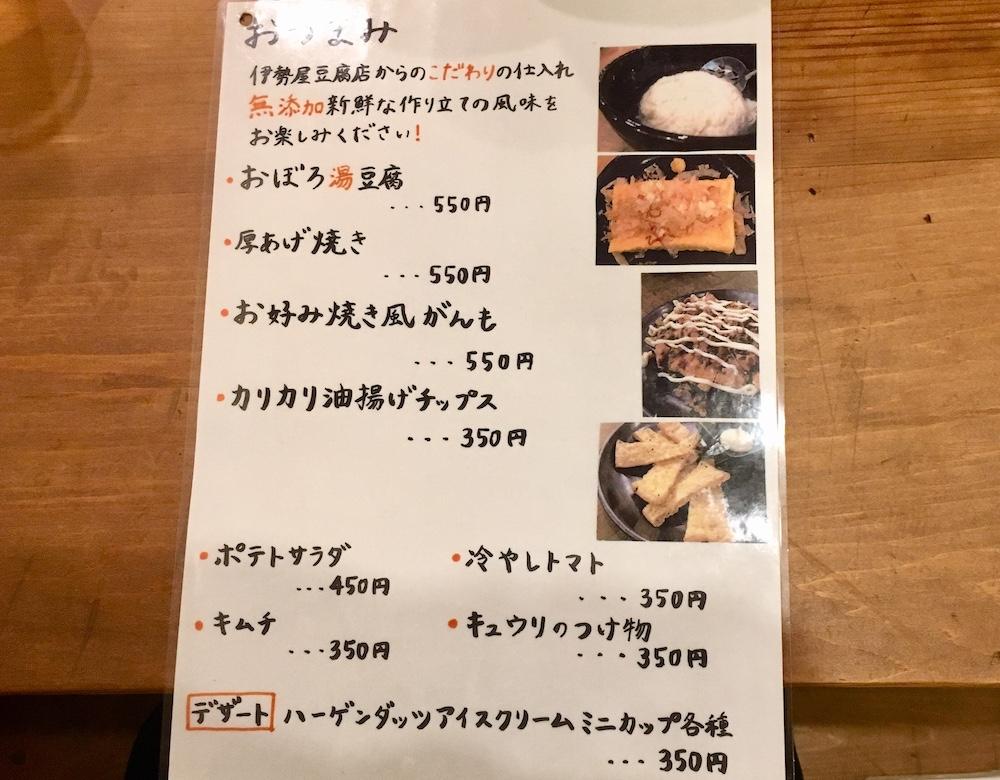 おつまみ
伊勢屋豆腐店からのこだわりの仕入れ
無添加新鮮な作り立ての風味を
お楽しみください!
・おぼろ湯豆腐
...550円
・厚あげ焼き
...550円
・お好み焼き風がんも
...550円
・カリカリ油揚げチップス
...350円
・ポテトサラダ
...450円
・冷やしトマト
...350円
・キムチ
...350円
・キュウリのつけ物
...350円
デザート ハーゲンダッツアイスクリームミニカップ各種
...350円